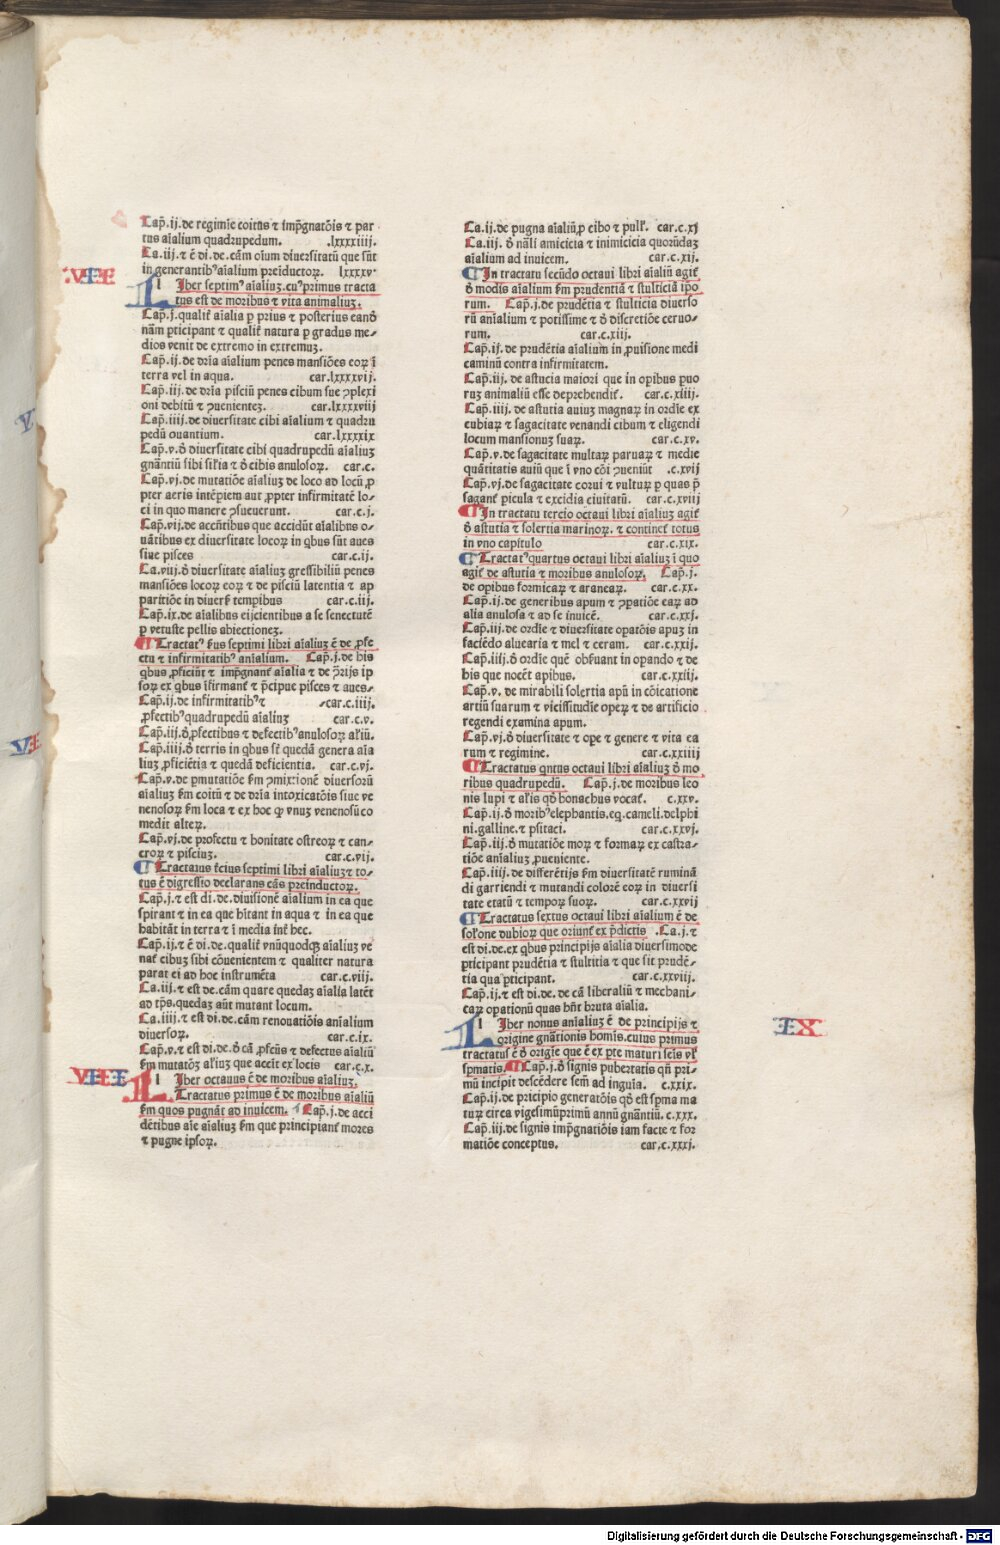 Cap̄.ij.de regimīe coitus ⁊ imp̄gnatōis ⁊ par
tus aīalium quadrupedum. .lxxxxiiij.
Ca.iij.⁊ ē di.de.cām oīum diuersitatū que sūt
in generantibꝰ aīalium preiductoꝝ. lxxxxv.
VII
l Iber septimꝰ aīaliuꝫ.cuꝰ primus tracta
tus est de moribus ⁊ vita animaliuꝫ.
Cap̄.j.qualiť aīalia p prius ⁊ posterius eandē
nām pticipant ⁊ qualiť natura p gradus me⸗
dios venit de extremo in extremuꝫ.
Cap̄.ij.de dr̄ia aīalium penes mansiōes eoꝝ ī
terra vel in aqua. car.lxxxxvij.
Cap̄.iij.de dr̄ia pisciū penes cibum siue ꝯplexi
oni debitū ⁊ ꝯuenienteꝫ. car.lxxxxviij
Cap̄.iiij.de diuersitate cibi aīalium ⁊ quadru
pedū ouantium. car.lxxxxix
Cap̄.v.ð diuersitate cibi quadrupedū aīaliuꝫ
gn̄antiū sibi sił'ia ⁊ ð cibis anulosoꝝ. car.c.
Cap̄.vj.de mutatiōe aīaliuꝫ de loco ad locū ꝓ
pter aeris intēpiem aut ꝓpter infirmitatē lo⸗
ci in quo manere ꝯsueuerunt. car.c.j.
Cap̄.vij.de accn̄tibus que accidūt aīalibus o⸗
uātibus ex diuersitate locoꝝ in qbus sūt aues
siue pisces car.c.ij.
Ca.viij.ð diuersitate aīaliuꝫ gressibiliū penes
mansiōes locoꝝ eoꝝ ⁊ de pisciū latentia ⁊ ap
paritiōe in diuerẜ tempibus car.c.iij.
Cap̄.ix.de aīalibus eijcientibus a se senectutē
p vetuste pellis abiectioneꝫ.
¶ Tractatꝰ s̄us septimi libri aīaliuꝫ ē de ꝓfe
ctu ⁊ infirmitatibꝰ aīalium. Cap̄.j.de his
qbus ꝓficiūt ⁊ imp̄gnanť aīalia ⁊ de ꝯ̄rijs ip
soꝝ ex qbus īfirmanť ⁊ p̄cipue pisces ⁊ aues⸗
Cap̄.ij.de infirmitatibꝰ⁊ ⸗car.c.iiij.
ꝓfectibꝰquadrupedū aīaliuꝫ car.c.v.
Cap̄.iij.ð ꝓfectibus ⁊ defectibꝰanulosoꝝ ał'iū.
Cap̄.iiij.ð terris in qbus sť quedā genera aīa
liuꝫ ꝓficiētia ⁊ quedā deficientia. car.c.vj.
Cap̄.v.de pmutatiōe s̄m ꝯmixtionē diuersorū
aīaliuꝫ s̄m coitū ⁊ de dr̄ia intoxicatōis siue ve
nenosoꝝ s̄m loca ⁊ ex hoc qꝙ vnuꝫ venenosū co
medit alteꝝ.
Cap̄.vj.de profectu ⁊ bonitate ostreoꝝ ⁊ can⸗
croꝝ ⁊ pisciuꝫ. car.c.vij.
¶ Tractatus ťcius septimi libri aīaliuꝫ ⁊ to⸗
tus ē digressio declarans cās preinductoꝝ.
Cap̄.j.⁊ est di.de.diuisiōne aīalium in ea que
spirant ⁊ in ea que hītant in aqua ⁊ in ea que
habitāt in terra ⁊ ī media inť hec.
Cap̄.ij.⁊ ē di.de.qualiť vnūquodqꝫ aīaliuꝫ ve
nať cibuꝫ sibi cōuenientem ⁊ qualiter natura
parat ei ad hoc instrumēta car.c.viij.
Ca.iij.⁊ est de.cām quare quedaꝫ aīalia latēt
ad tp̄s.quedaꝫ aūt mutant locum.
Ca.iiij.⁊ est di.de.cām renouatiōis aīalium
diuersoꝝ. car.c.ix.
Cap̄.v.⁊ est di.de.ð cā ꝓfcūs ⁊ defectus aīaliū
s̄m mutatōꝫ ał'iuꝫ que accīt ex locis car.c.x.
VIII
l Iber octauus ē de moribus aīaliuꝫ.
Tractatus primus ē de moribus aīaliū
s̄m quos pugnāt ad inuicem. ¶ Cap̄.j.de acci
dētibus aīe aīaliuꝫ s̄m que principianť mores
⁊ pugne ipsoꝝ.
Ca.ij.de pugna aīaliū.ꝓ cibo ⁊ pull'. car.c.xj
Ca.iij. ð nāli amicicia ⁊ inimicicia quorūdaꝫ
aīalium ad inuicem. car.c.xij.
¶ In tractatu secūdo octaui libri aīaliū agiť
ð modis aīalium s̄m prudentiā ⁊ stulticiā ipo
rum. Cap̄.j.de prudētia ⁊ stulticia diuerso
rū aīalium ⁊ potissime ⁊ ð discretiōe ceruo⸗
rum. car.c.xiij.
Cap̄.ij.de prudētia aīalium in ꝓuisione medi
caminū contra infirmitatem.
Cap̄.iij. de astucia maiori que in opibus puo
ruꝫ animaliū esse deprehendiť. car.c.xiiij.
Cap̄.iiij. de astutia auiuꝫ magnaꝝ in ordīe ex
cubiaꝝ ⁊ sagacitate venandi cibum ⁊ eligendi
locum mansionuꝫ suaꝝ. car.c.xv.
Cap̄.v.de sagacitate multaꝝ paruaꝝ ⁊ medie
quātitatis auiū que ī vno cōi ꝯueniūt .c.xvij
Cap̄.vj.de sagacitate corui ⁊ vultuꝝ p quas p̄
saganť picula ⁊ excidia ciuitatū. car.c.xviij
¶ In tractatu tercio octaui libri aīaliuꝫ agiť
ð astutia ⁊ solertia marinoꝝ. ⁊ continet totus
in vno capitulo car.c.xix.
¶ Tractatꝰquartus octaui libri aīaliuꝫ ī quo
agiť de astutia ⁊ moribus anulosoꝝ. Cap̄.j.
de opibus formicaꝝ ⁊ araneaꝝ. car.c.xx.
Cap̄.ij.de generibus apum ⁊ ꝯpatiōe eaꝝ ad
alia anulosa ⁊ ad se inuicē. car.c.xxj.
Cap̄.iij.de ordīe ⁊ diuersitate opatōis apuꝫ in
faciēdo aluearia ⁊ mel ⁊ ceram. car.c.xxij.
Cap̄.iiij.ð ordīe quē obẜuant in opando ⁊ de
his que nocēt apibus. car.c.xxiij.
Cap̄.v. de mirabili solertia apū in cōicatione
artiū suarum ⁊ vicissitudīe opeꝝ ⁊ de artificio
regendi examina apum.
Cap̄.vj.ð diuersitate ⁊ ope ⁊ genere ⁊ vita ea
rum ⁊ regimine. car.c.xxiiij
¶ Tractatus qntus octaui libri aīaliuꝫ ð mo
ribus quadrupedū. Cap̄.j.de moribus leo
nis lupi ⁊ ał'is qð bonachus vocať. c.xxv.
Cap̄.ij.ð moribꝰelephantis.eq.cameli.delphi
ni.galline.⁊ psitaci. car.c.xxvj.
Cap̄.iij.ð mutatiōe moꝝ ⁊ formaꝝ ex castra⸗
tiōe aīaliuꝫ ꝓueniente.
Cap̄.iiij.de differētijs s̄m diuersitatē ruminā
di garriendi ⁊ mutandi colorē eoꝝ in diuersi
tate etatū ⁊ tempoꝝ suoꝝ. car.c.xxvij
¶ Tractatus sextus octaui libri aīalium ē de
sol'one dubioꝝ que oriunť ex p̄dictis .Ca.j.⁊
est di.de.ex qbus principijs aīalia diuersimode
pticipant prudētia ⁊ stultitia ⁊ que sit prudē⸗
tia qua pticipant. car.c.xxviij.
Cap̄.ij.⁊ est di.de. de cā liberaliū ⁊ mechani⸗
caꝝ opationū quas hn̄t bruta aīalia.
IX
l Iber nonus aīaliuꝫ ē de principijs ⁊
origine gn̄ationis homis.cuius primus
tractatus ē ð origīe que ē ex pte maturi seīs vł
spmatis. ¶ Cap̄.j.ð signis pubertatis qn̄ pri⸗
mū incipit descēdere sem̄ ad inguia. c.xxix.
Cap̄.ij.de pricipio generatōis qð est spma ma
tuꝝ circa vigesimūprimū annū gn̄antiū. c.xxx.
Cap̄.iij.de signis imp̄gnatiōis iam facte ⁊ for
matiōe conceptus. car.c.xxxj.
V
VII
Digitalisierung gefördert durch die Deutsche Forschungsgemeinschaft - DFG